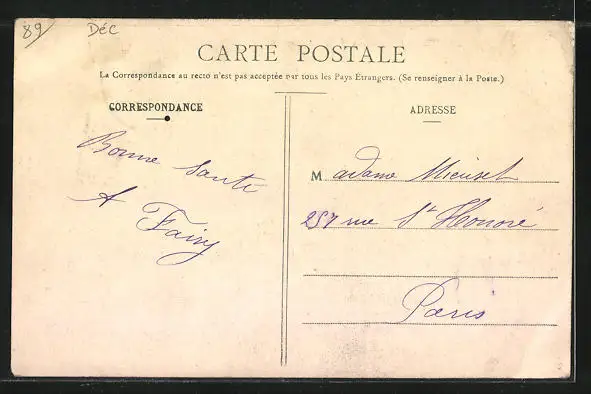 89 Déc
CARTE POSTALE
La Correspondance au recto n'est pas acceptée par tous les Pays Étrangers. (Se renseigner à la Poste.)
CORRESPONDANCE
Bonne Santé
A
ADRESSE
Madame
257 rue St Honoré
Paris